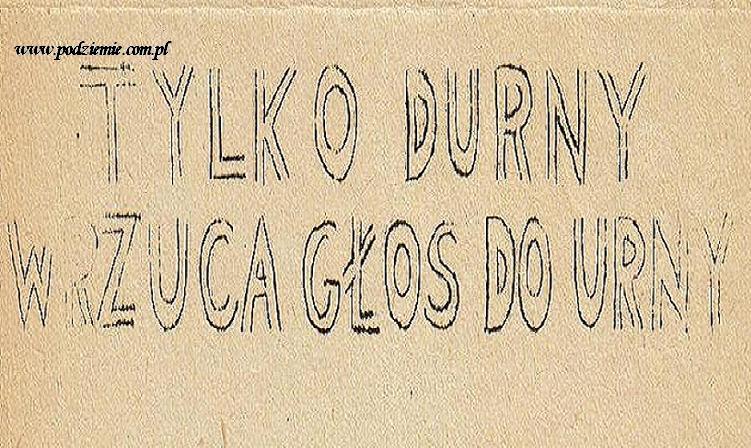 www.podziemie.com.pl
TYLKO DURNY
WRZUCA GŁOS DO URNY